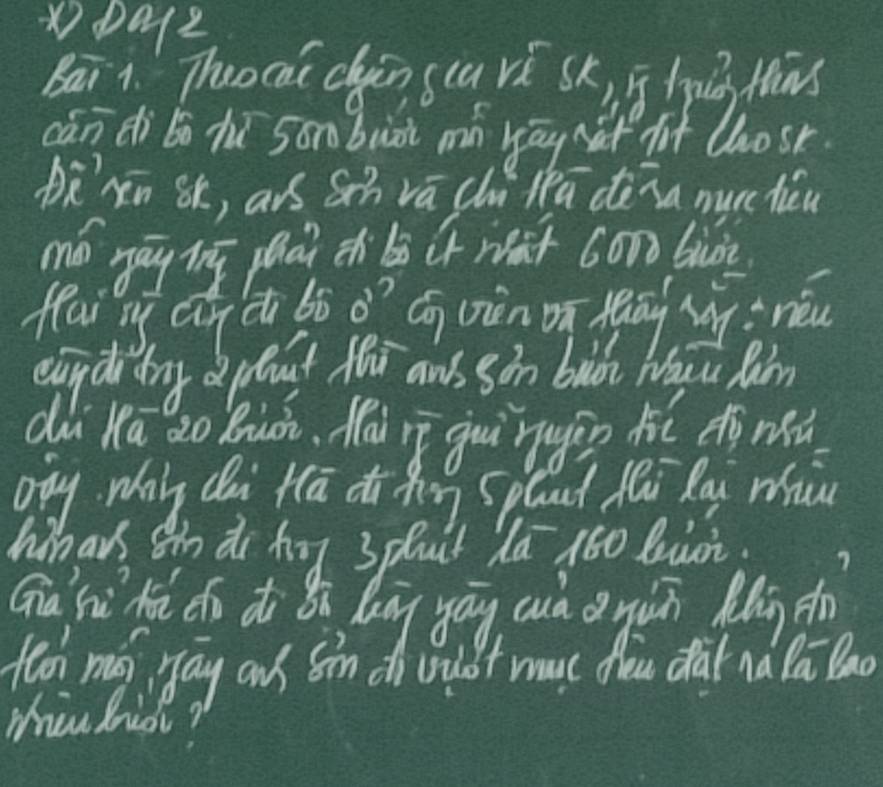 *) Dạy 2
Bài 1. Theo các chyên gia về SK, ng trưởng thành
cần đi bộ từ 5000 bước mỗi ngày rất tốt cho sk.
Để rèn sk, anh Sơn và chị Hà đề ra mục tiêu
mỗi ngày ng phải đi bộ ít nhất 6000 bước.
Hai ng cùng đi bộ ở công viên và thấy rằng: nếu
cùng đi trong 2 phút thì anh Sơn bước nhiều hơn
chị Hà 20 bước. Hai ng giữ nguyên tốc độ như
vậy nhưng chị Hà đi trong 5 phút thì lại nhiều
hơn anh Sơn đi trong 3 phút là 160 bước.
Giả sử tốc độ đi bộ hàng ngày của 2 người không đổi
Hỏi mỗi ngày anh Sơn đi vượt mục tiêu đặt ra là bao
nhiêu bước?